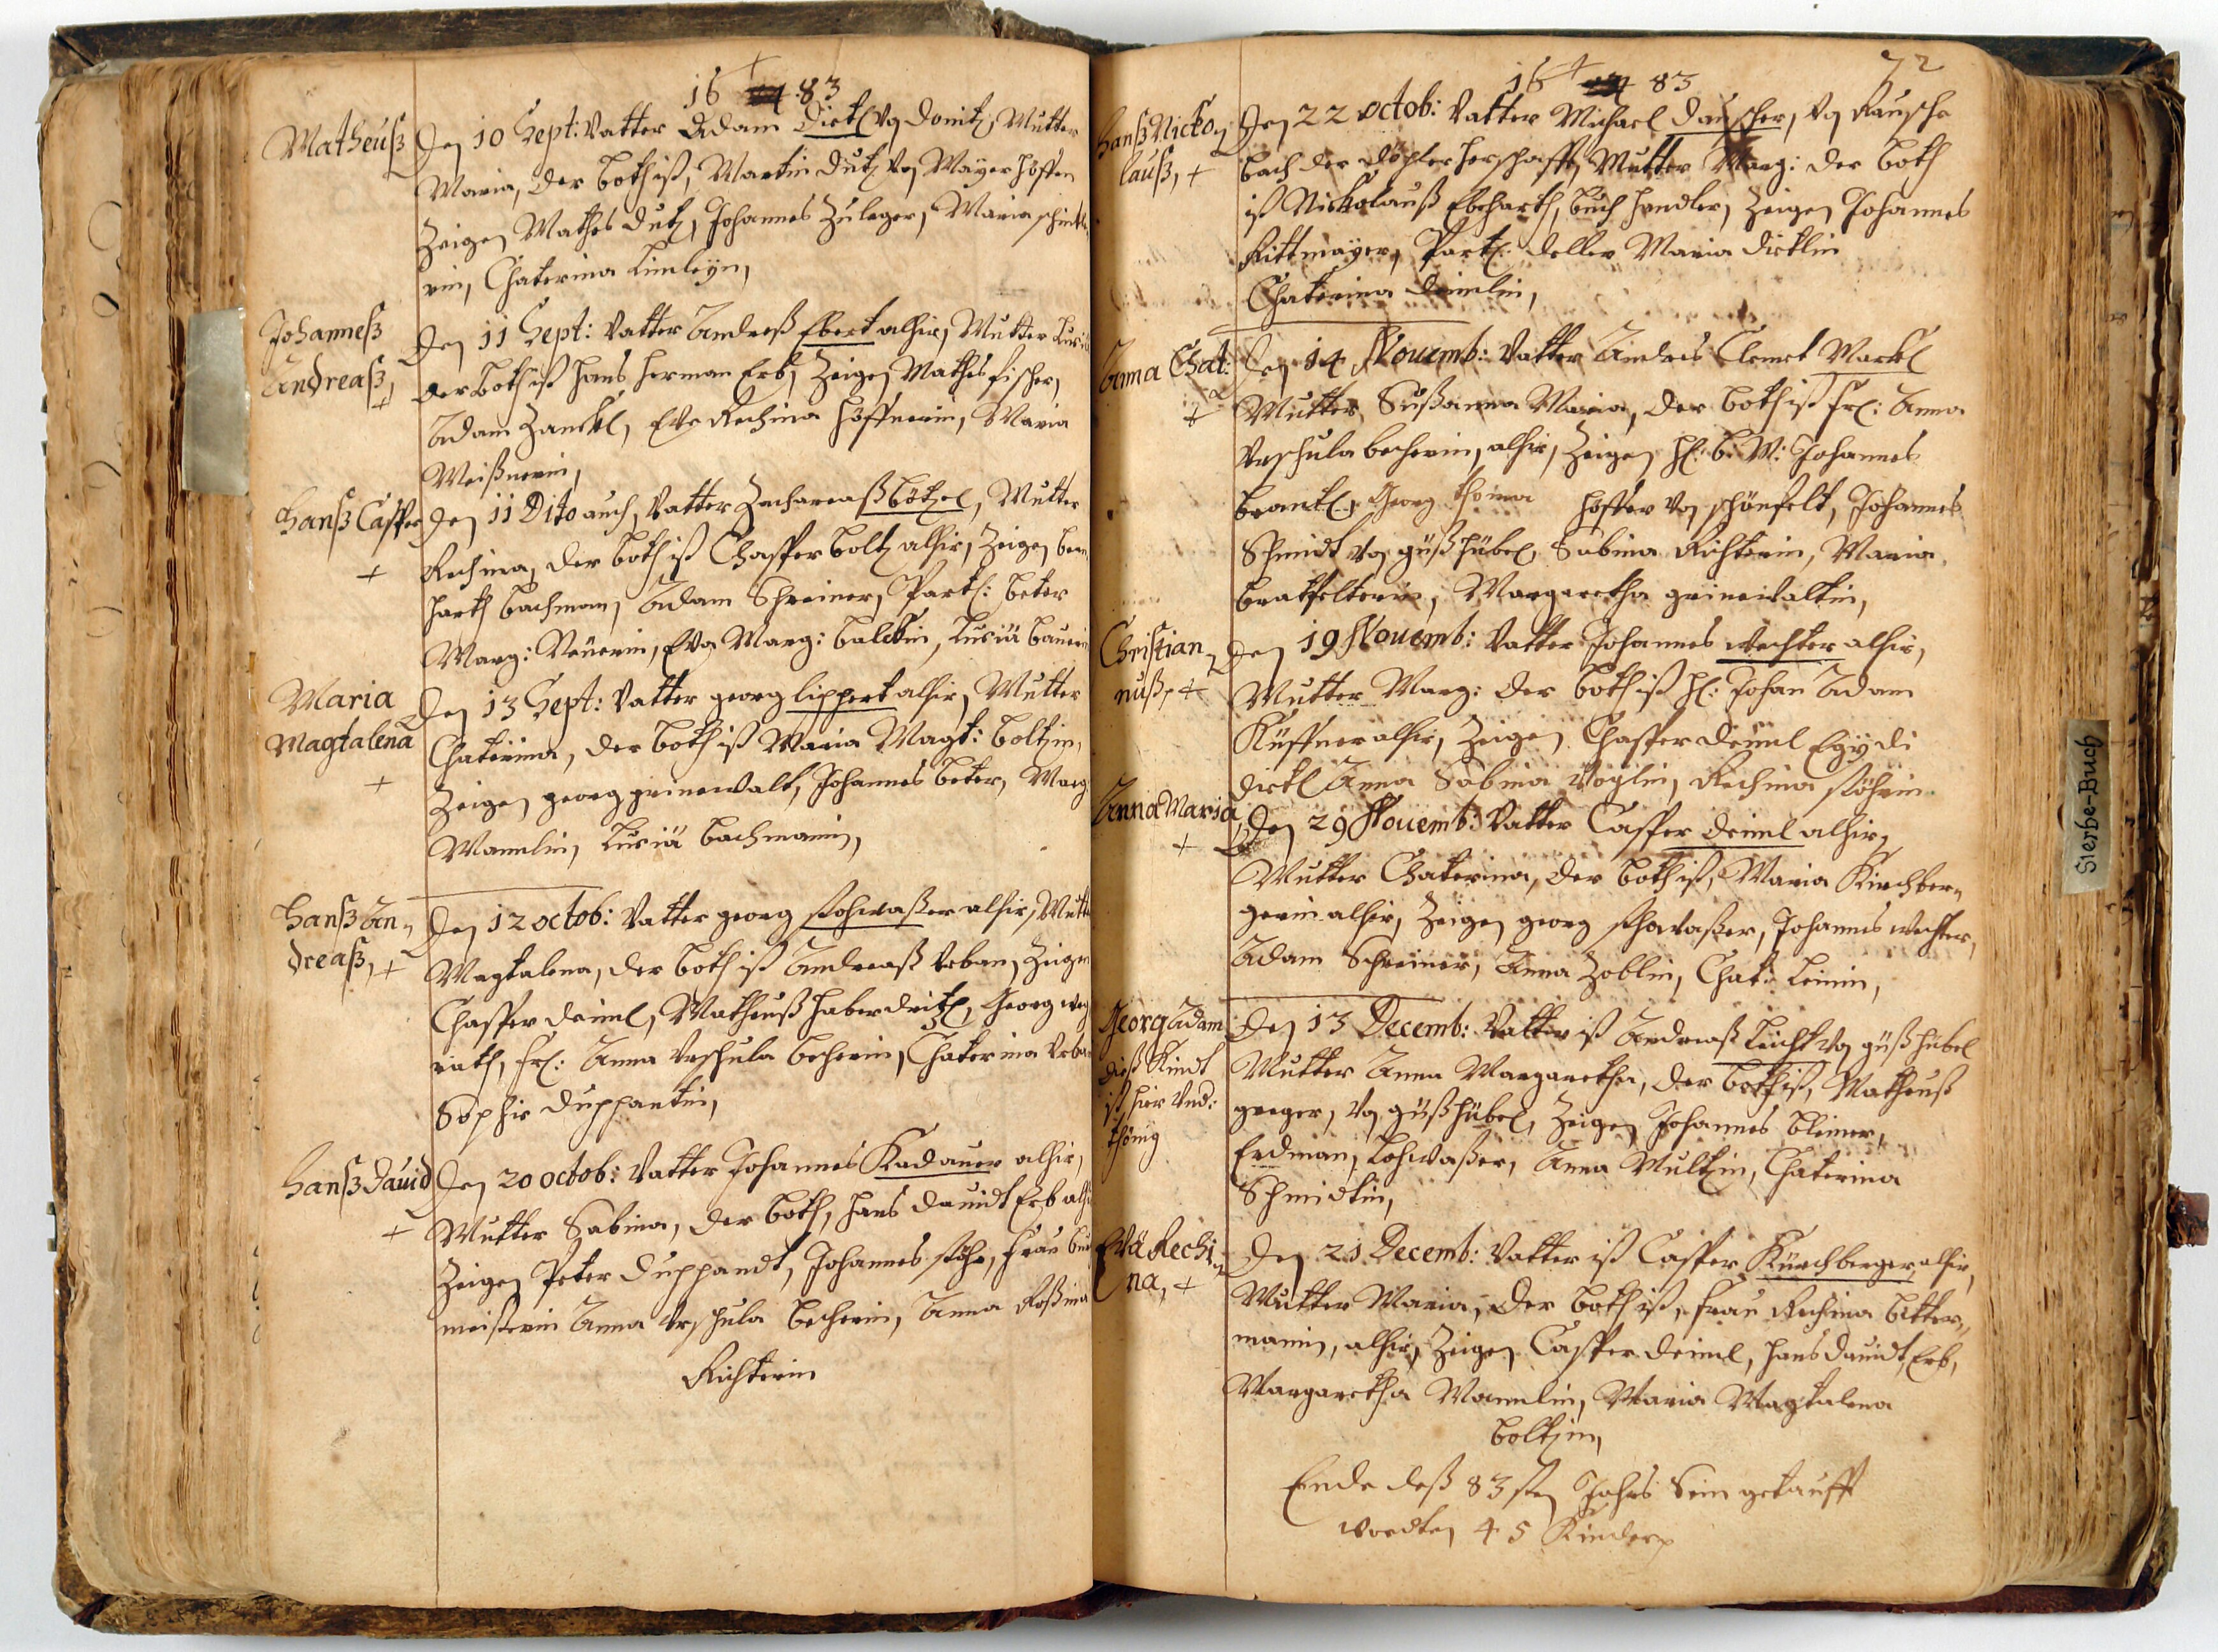 16 83
Matheuß
Den 10 Sept: Vatter Adam Dietl Von Donitz, Mutter
Maria, der Both ist, Martin Dutz Von Mayerhöffen
Zeigen Mathes Dutz, Johannes Zuleger, Maria
rin, Chaterina Limleyn,
Johanneß
Andreaß, +
Den 11 Sept: Vatter Andreß Ebert alhir, Mutter
der Both ist Hans Herman Erb, Zeigen Mathes Fischer,
Adam Zanckl, Eva Rechina Höffnerin, Maria
Meißnerin,
Hanß Casper
+
Den 11 Dito auch, Vatter Zachareaß Bötzel, Mutter
Rechina, der Both ist Chasper Boltz alhir, Zeigen Bern
harth Bachman, Adam Schreiner, Partl: Beter
Marg: Neuerin, Eva Marg: Balckin, Lusiä Baurin
Maria
Magtalena
+
Den 13 Sept: Vatter georg lippert alhir, Mutter
Chaterina, der Both ist Maria Magt: Boltzin,
Zeigen georg grinewalt, Johannes Beter, Marg
Mannlin, Lusiä Bachmanin,
Hanß An„
dreaß, +
Den 12 octob: Vatter georg stohwaßer alhir, Mutt
Magtalena, der Both ist Andreaß Urban, Zeigen
Chasper Deiml, Matheuß Haberditzl, Georg weg
rath, Fr: Anna Urschula Becherin, Chaterina Urba
Sophia Duppautin,
Hanß Dauid
+
Den 20 octob: Vatter Johannes Kadauer alhir,
Mutter Sabina, der Both, Hans Dauidt Erb alhi
Zeigen Peter Duppandt, Johannes Stöhr, Frau Bur
meisterin Anna Urschula Becherin, Anna Roßina
Richterin
16 83
72
Hanß Nicko„
lauß, +
Den 22 octob: Vatter Michael Dauscher, Von Rausche
bach der Döpler Herschafft, Mutter Marg: der Both
ist Nickolauß Ebeharth, Buch Handler, Zeigen Johannes
Rittmayer, Partl: deller Maria Dietlin
Chaterina Deimlin,
Anna Chat:
+
Den 14 Nouemb: Vatter Andres Clemet Marckl
Mutter Sußanna Maria, der Both ist Fr: Anna
Urschula Becherin, alhir, Zeigen H: B. M: Johannes
Brantl, Georg Thoma Höffer Von Schönfelt, Johannes
Schmidt Von güßhübel, Sabina Richterin, Maria
Bratfelterin, Margaretha grinewaltin,
Christian„
nuß, +
Den 19 Nouemb: Vatter Johannes wechter alhir,
Mutter Marg: der Both ist H: Johan Adam
Küffner alhir, Zeigen Chasper Deiml Egydi
Dietl Anna Sabina Voglin, Rechina Stöhrin
Anna Maria
+
Den 29 Nouemb: Vatter Casper Deiml alhir,
Mutter Chaterina, der Both ist, Maria Kirchber„
gerin alhir, Zeigen georg Stohwaßer, Johannes wechter,
Adam Schreiner, Anna Zoblin, Chat: Leimin,
Georg Adam
dieß Kindt
ist hier Und:
thönig
Den 13 Decemb: Vatter ist Andreaß Leicht Von güßhübel
Mutter Anna Margaretha, der Both ist, Matheuß
greger, Von güßhübel, Zeigen Johannes Bleimer,
Erdman, Lohwaßer, Anna Multzin, Chaterina
Schmidtin,
Evä Rechi„
na, +
Den 21 Decemb: Vatter ist Casper Kürchberger, alhir,
Mutter Maria, der Both ist, Frau Rechina Bitter„
manin, alhir, Zeigen Casper Deiml, Hans Dauidt Erb,
Margaretha Mannlin, Maria Magtalena
Boltzin,
Ende deß 83sten Jahrs Sein getaufft
wordten 45 Kinder
Sterbe-Buch